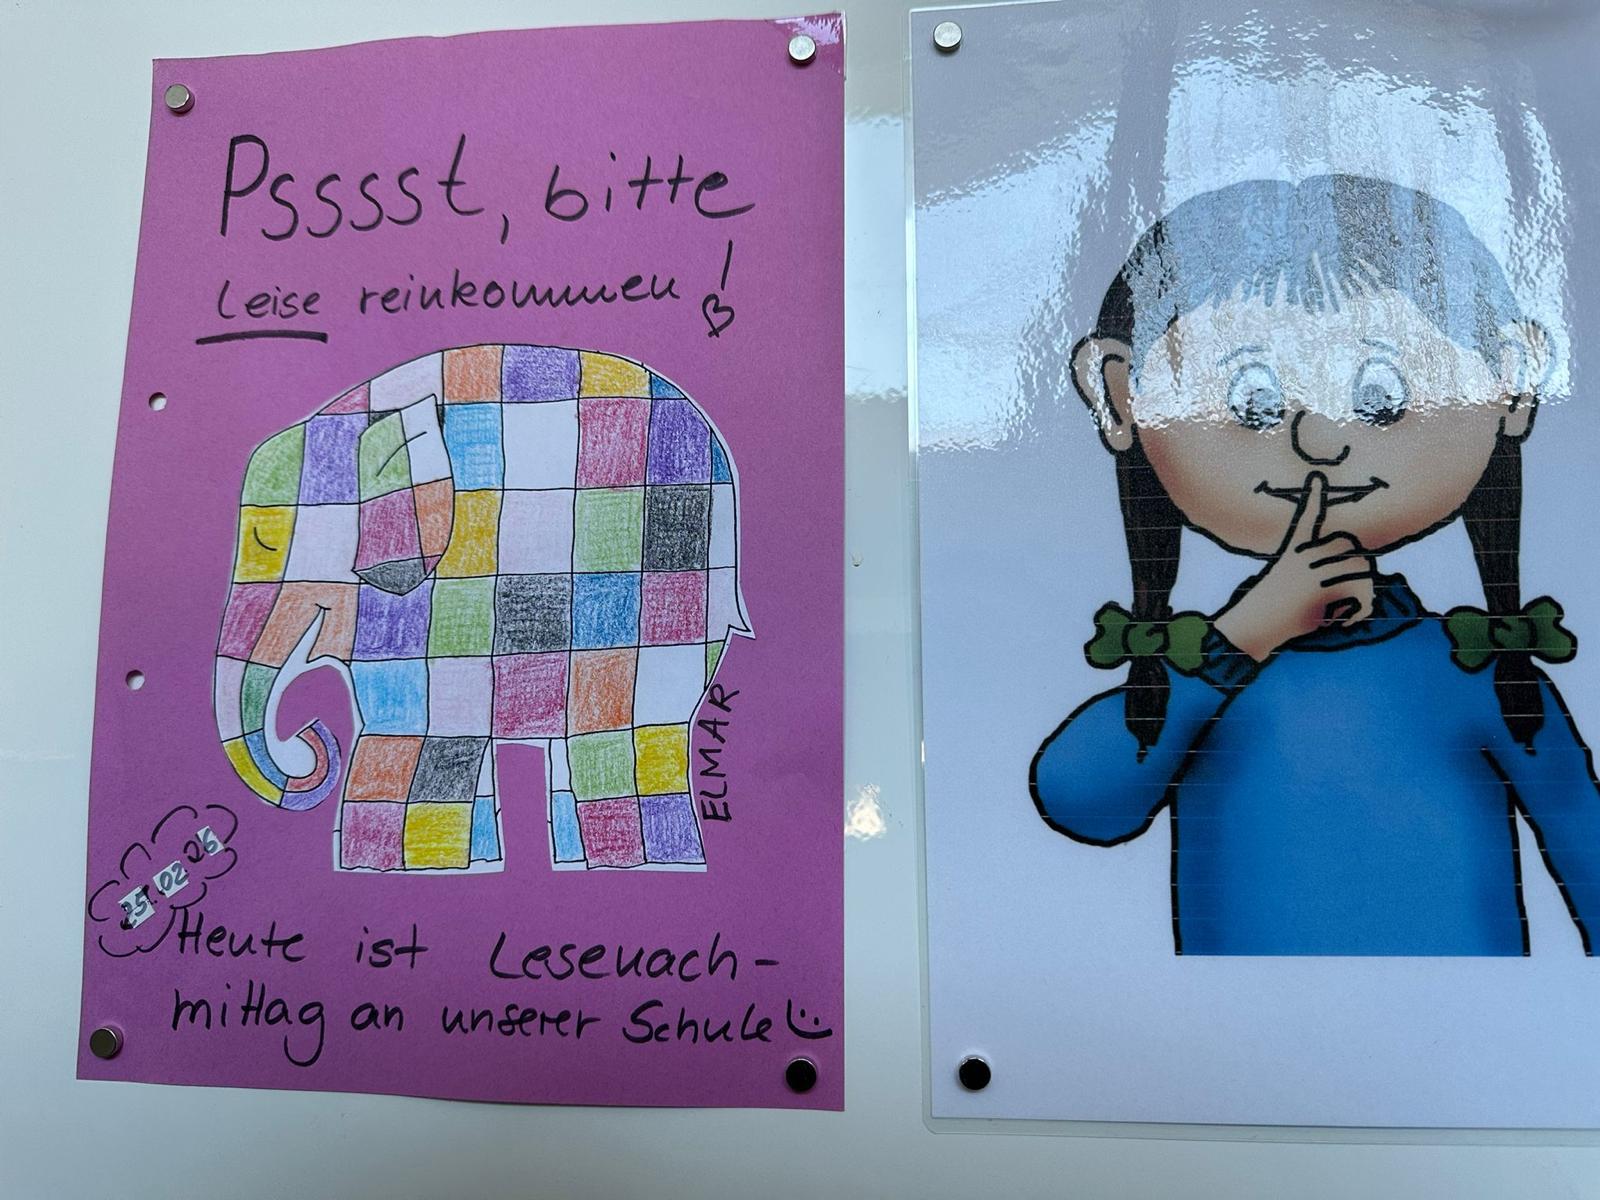 Psssst, bitte
leise reinkommen!
ELMAR
25.02.26
Heute ist Lesenach-
mittag an unserer Schule